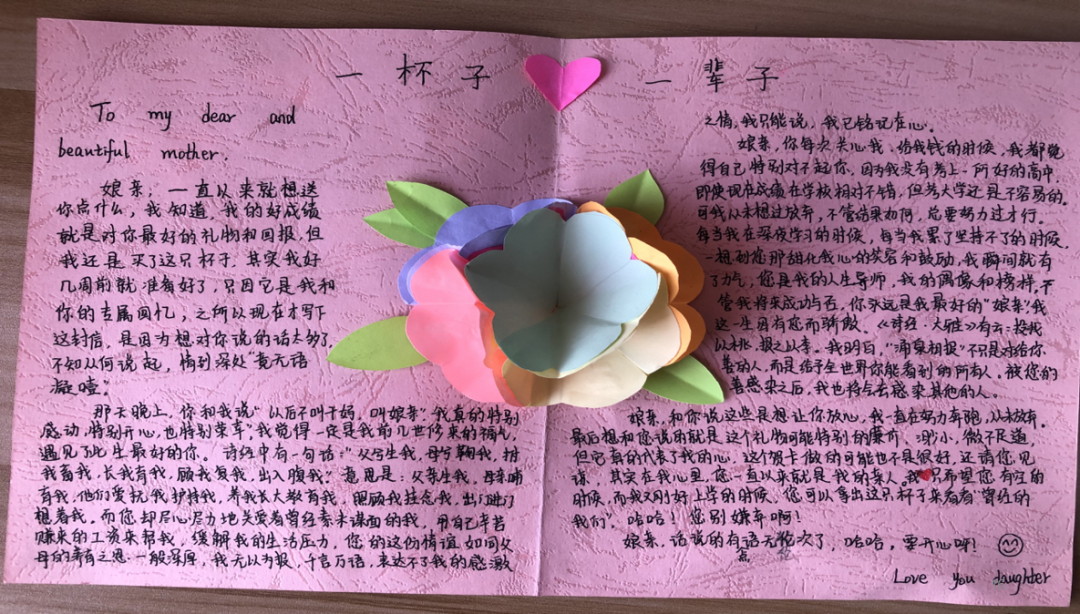 一杯子 一辈子
To my dear and
beautiful mother.
娘亲，一直以来就想送
你点什么，我知道，我的好成绩
就是对你最好的礼物和回报，但
我还是买了这只杯子，其实我好
几周前就准备好了，只因它是我和
你的专属回忆，之所以现在才写下
这封信，是因为想对你说的话太多了，
不知从何说起，情到深处“竟无语
凝噎”。
那天晚上，你和我说“以后不叫干妈，叫娘亲”我真的特别
感动，特别开心，也特别荣幸，我觉得一定是我前几世修来的福气，
遇见了此生最好的你。诗经中有一句话：“父兮生我，母兮鞠我，拊
我畜我，长我育我，顾我复我，出入腹我。”意思是：父亲生我，母亲哺
育我，他们爱抚我护持我，养我长大教育我，照顾我挂念我，出门进门
想着我。而您却尽心尽力地关爱着曾经素未谋面的我，用自己辛苦
赚来的工资来帮我，缓解我的生活压力，您的这份情谊，如同父
母的养育之恩一般深厚，我无以为报，千言万语，表达不了我的感激
之情，我只能说，我已铭记在心。
娘亲，你每次关心我、给我钱的时候，我都觉
得自己特别对不起你，因为我没有考上一所好的高中，
即使现在成绩在学校相对不错，但考大学还是不容易的。
可我从未想过放弃，不管结果如何，总要努力过才行。
每当我在深夜学习的时候，每当我累了坚持不了的时候，
一想到您那甜化我心的笑容和鼓励，我瞬间就有
了力气，您是我的人生导师，我的偶像和榜样，不
管我将来成功与否，你永远是我最好的“娘亲”，我
这一生因有您而骄傲。《诗经·大雅》有云：投我
以桃，报之以李。我明白，“涌泉相报”不只是对给你
善的人，而是给予全世界你能看到的所有人。被您的
善感染之后，我也将会去感染其他的人。
娘亲，和你说这些是想让你放心，我一直在努力奔跑，从未放弃。
最后想和您说的就是，这个礼物可能特别的廉价、渺小、微不足道，
但它真的代表了我的心，这个贺卡做的可能也不是很好，还请您见
谅，其实在我心里，您一直以来就是我的亲人，我只希望您有空的
时候，而我又刚好上学的时候，您可以拿出这只杯子来看看“曾经的
我们”，哈哈！您别嫌弃啊！
娘亲，话说的有点无伦次了，哈哈，要开心呀！
Love you daughter